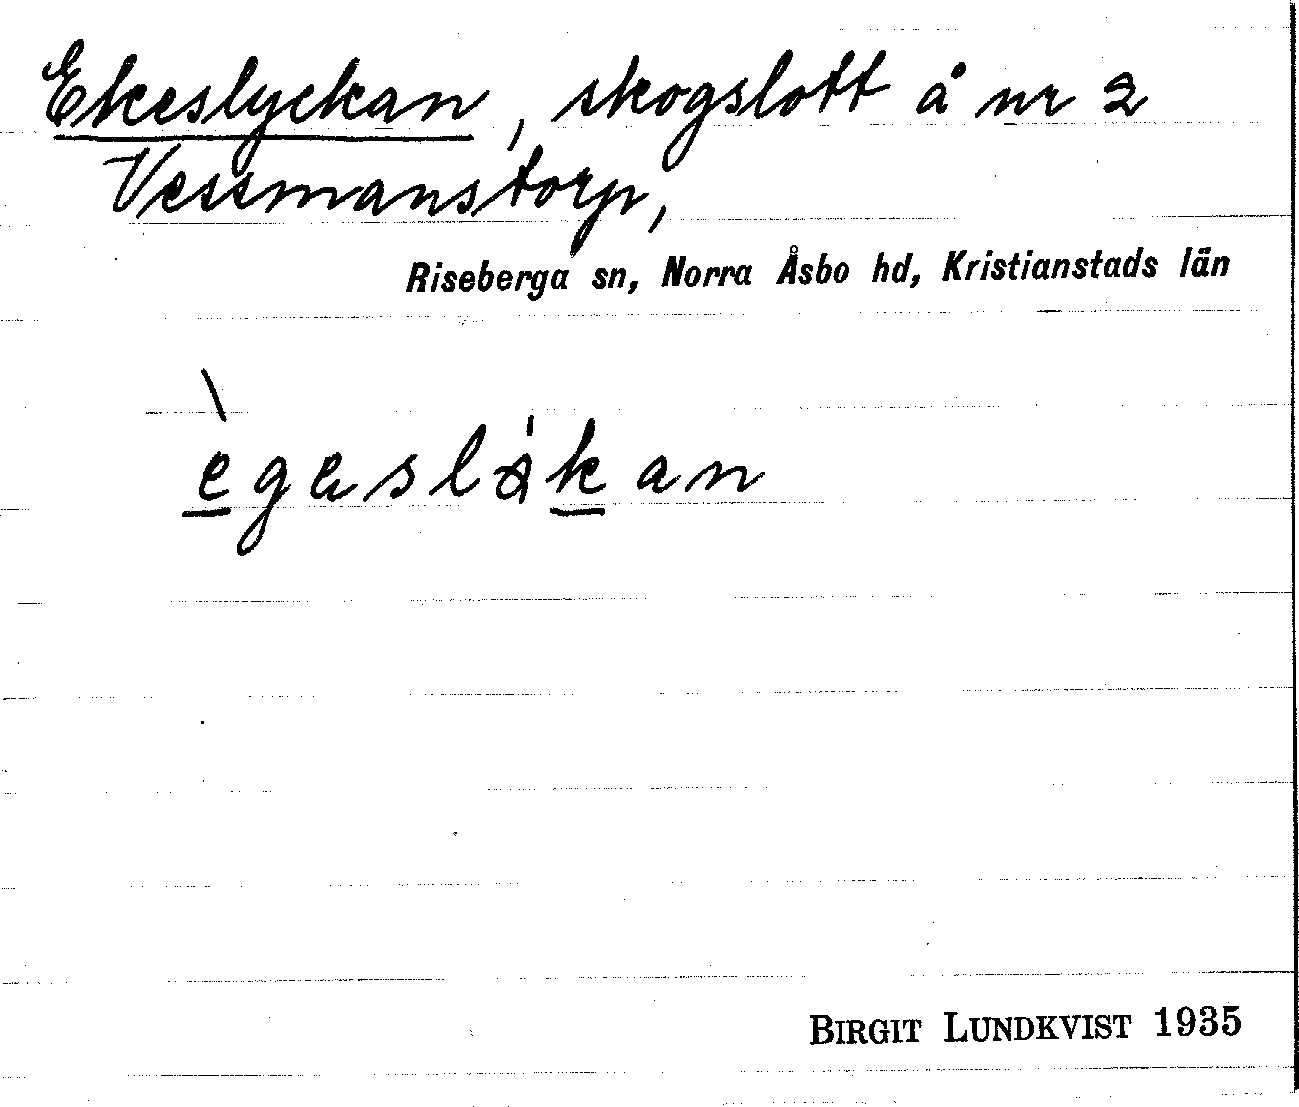 Ekeslyckan, skogslott å nr 2
Vessmanstorp,
Riseberga sn, Norra Åsbo hd, Kristianstads län
BIRGIT LUNDKVIST 1935